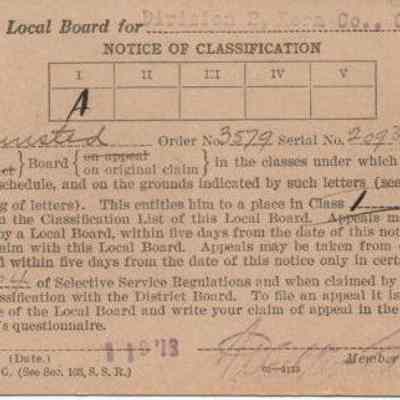 Local Board for Division 2, Kern Co.,
NOTICE OF CLASSIFICATION
I II III IV V
A
Order No. 3579 Serial No. 2093
Board { on appeal
on original claim } in the classes under which
schedule, and on the grounds indicated by such letters (see
g of letters). This entitles him to a place in Class 1
n the Classification List of this Local Board. Appeals ma
by a Local Board, within five days from the date of this not
aim with this Local Board. Appeals may be taken from
d within five days from the date of this notice only in cert
of Selective Service Regulations and when claimed by
ssification with the District Board. To file an appeal it is
e of the Local Board and write your claim of appeal in the
's questionnaire.
(Date.) Member
G. (See Sec. 103, S. S. R.)